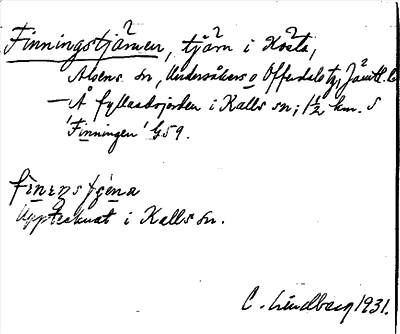 Finningstjärnen, tjärn i Kösta,
Alsens sn, Undersåkers o Offerdals tg, Jämtl. l.
— Å fyllnadsjorden i Kalls sn; 1½ km. S
'Finningen' G59.
Upptecknat i Kalls sn.
C. Lindberg 1931.